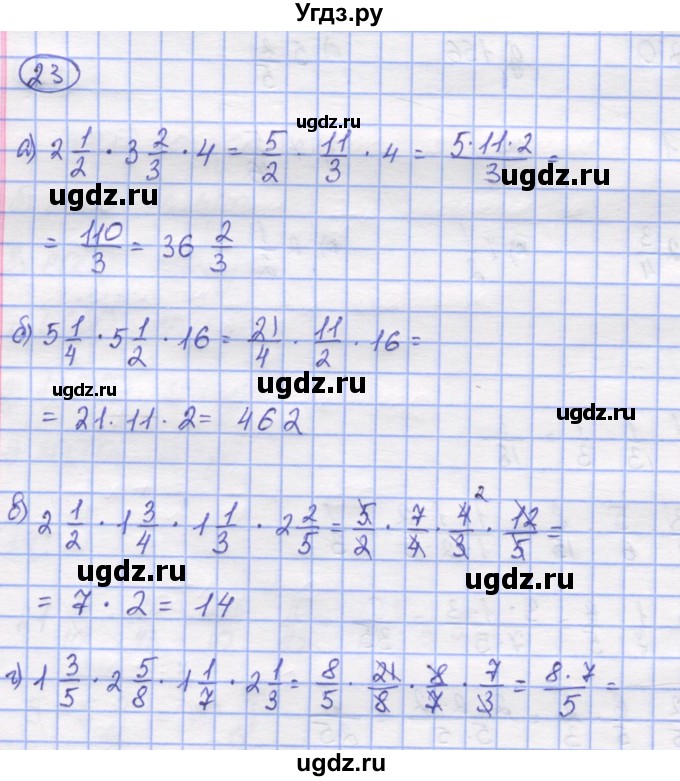 Угдз.ру
23
ugdz.ru
а) 2 1/2 · 3 2/3 · 4 = 5/2 · 11/3 · 4 = 5·11·2/3 =
ugdz.ru
ugdz.ru
= 110/3 = 36 2/3
ugdz.ru
б) 5 1/4 · 5 1/2 · 16 = 21/4 · 11/2 · 16 =
ugdz.ru
ugdz.ru
ugdz.ru
= 21·11·2 = 462
в) 2 1/2 · 1 3/4 · 1 1/3 · 2 2/5 = 5/2 · 7/4 · 4/3 · 12/5 = 2
ugdz.ru
ugdz.ru
= 7·2 = 14
ugdz.ru
г) 1 3/5 · 2 5/8 · 1 1/7 · 2 1/3 = 8/5 · 21/8 · 8/7 · 7/3 = 8·7/5 =
ugdz.ru
ugdz.ru